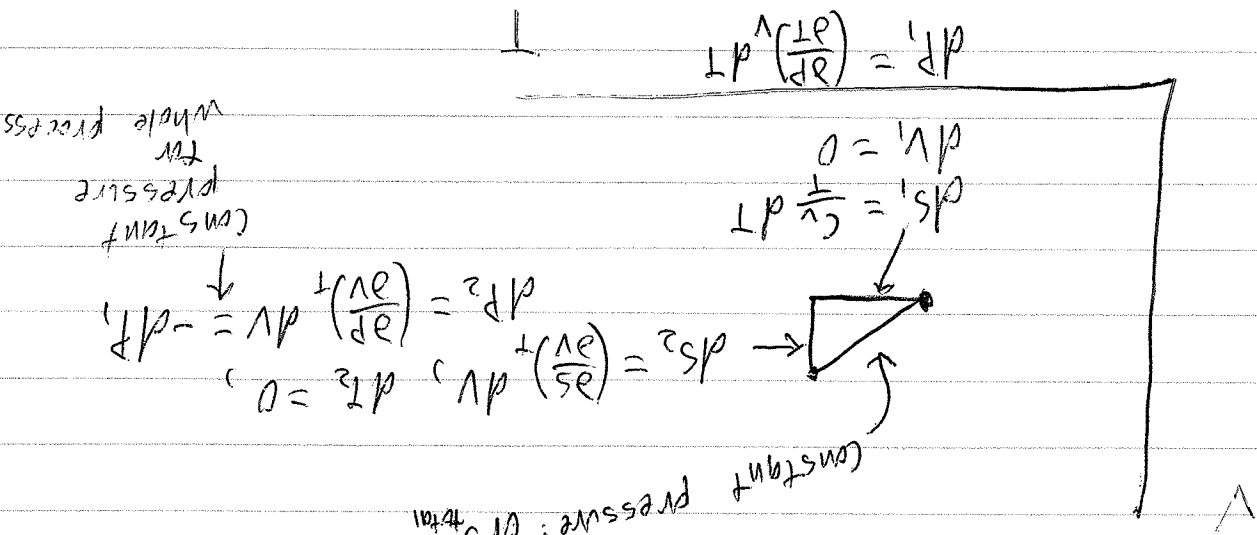 V
Constant pressure:
dS₂ = (∂S/∂V)_T dV, dT₂ = 0,
dP₂ = (∂P/∂V)_T dV = -dP₁
Constant
pressure
for
whole process
dS₁ = C_V/T dT
dV₁ = 0
dP₁ = (∂P/∂T)_V dT
T